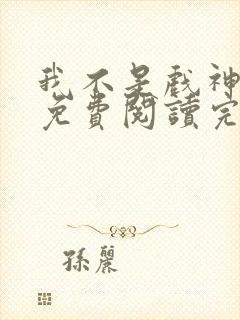 我不是戲神
免費閱讀完
孫麗